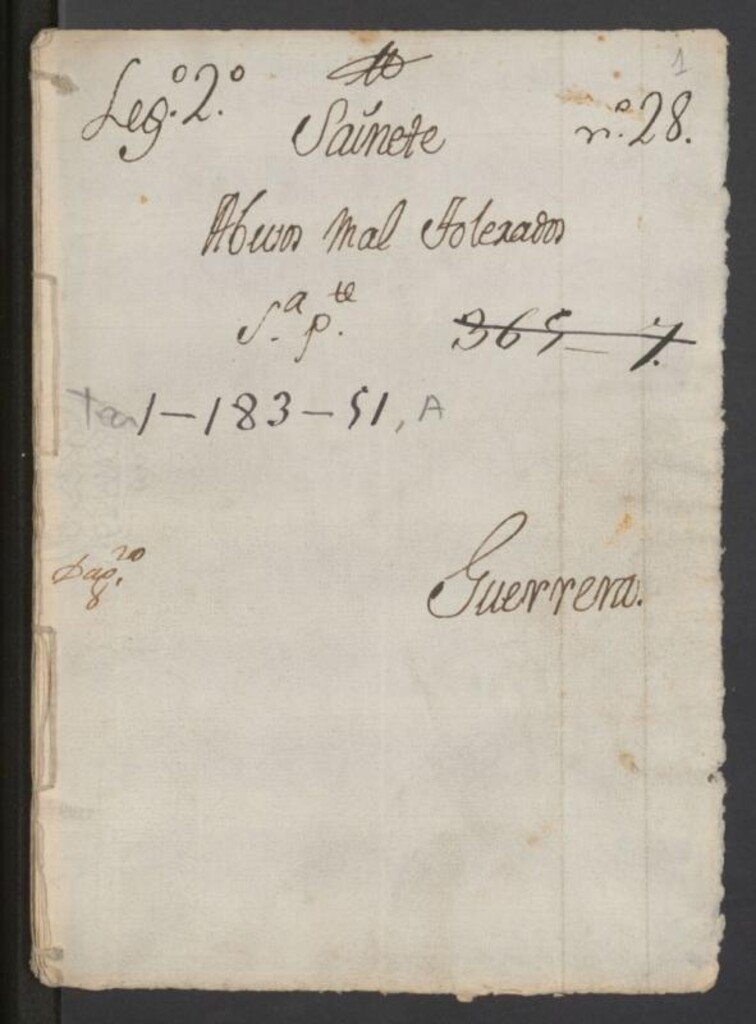 1
Leg.º 2.º
nº. 28.
Sainete
Abusos Mal tolerados
S.ª p.te
365-7.
Tea 1-183-51, A
Guerrero.